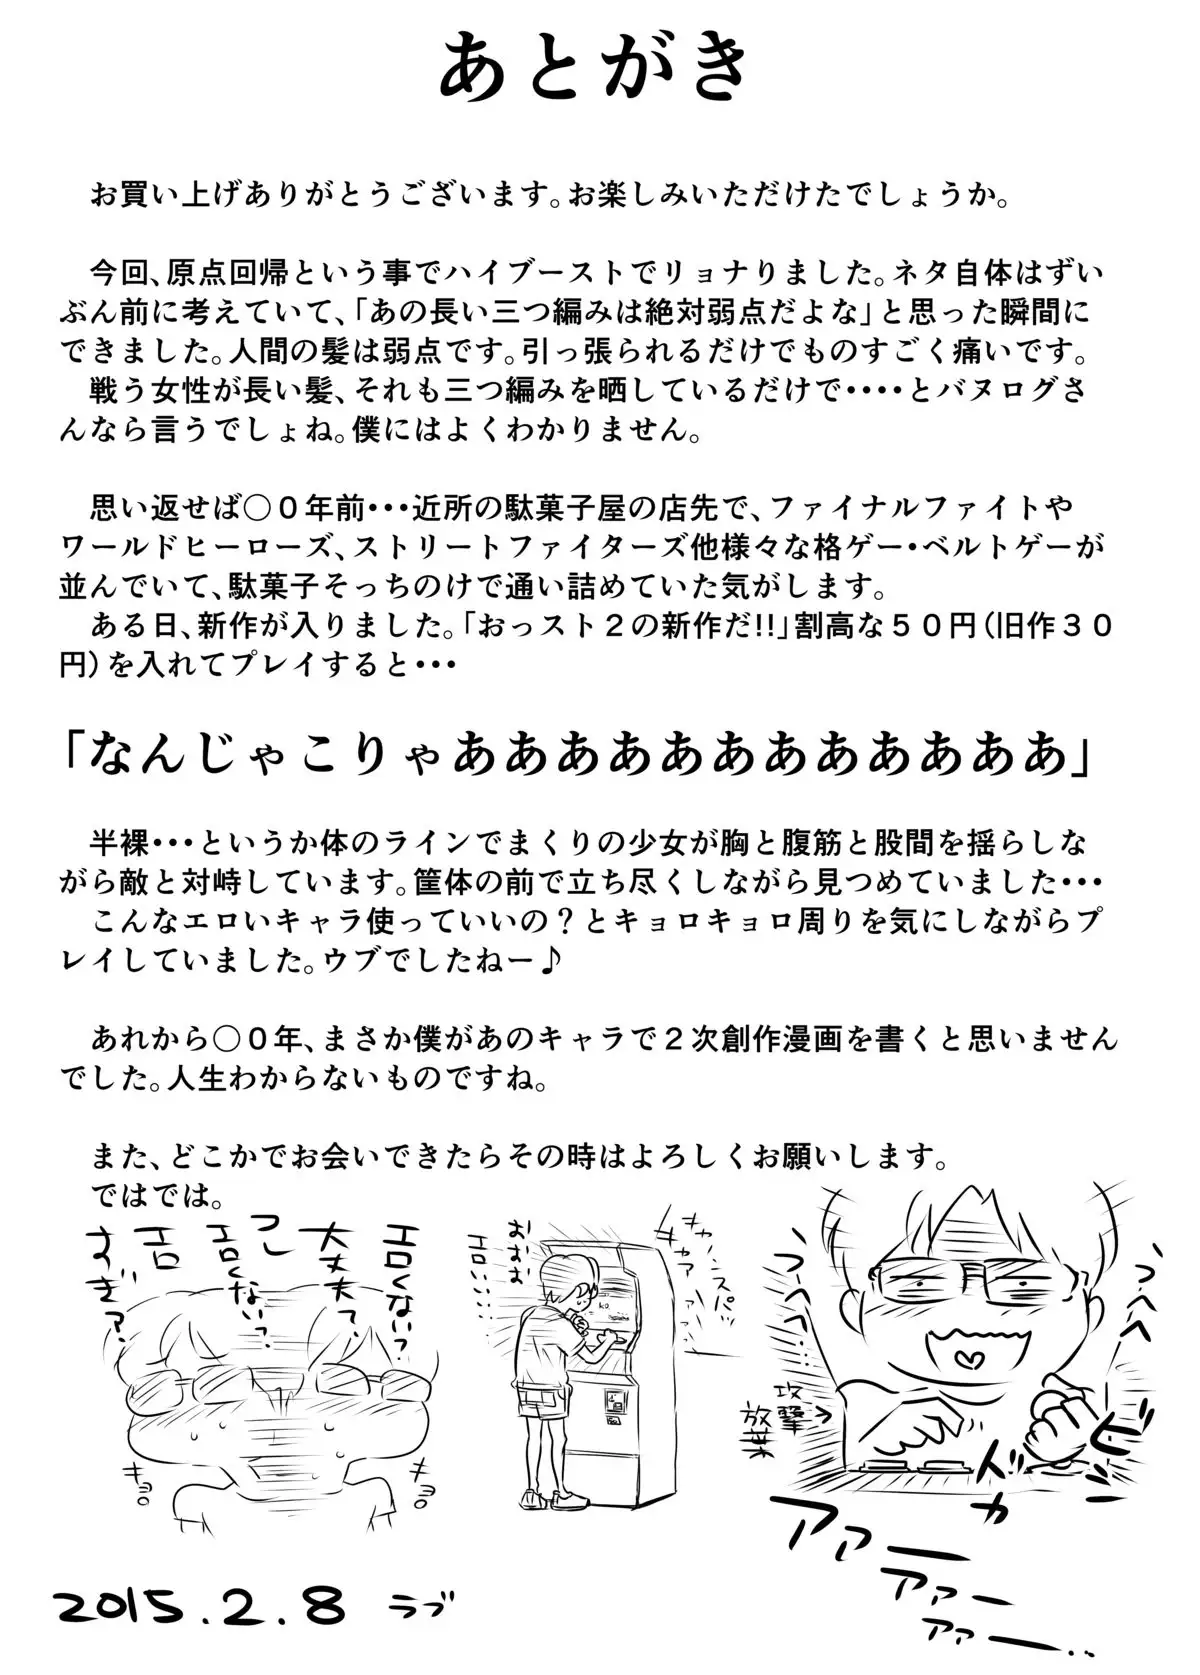 あとがき
お買い上げありがとうございます。お楽しみいただけたでしょうか。
今回、原点回帰という事でハイブーストでリョナりました。ネタ自体はずい
ぶん前に考えていて、「あの長い三つ編みは絶対弱点だよな」と思った瞬間に
できました。人間の髪は弱点です。引っ張られるだけでものすごく痛いです。
戦う女性が長い髪、それも三つ編みを晒しているだけで・・・・とバヌログさ
んなら言うでしょね。僕にはよくわかりません。
思い返せば○０年前・・・近所の駄菓子屋の店先で、ファイナルファイトや
ワールドヒーローズ、ストリートファイターズ他様々な格ゲー・ベルトゲーが
並んでいて、駄菓子そっちのけで通い詰めていた気がします。
ある日、新作が入りました。「おっスト２の新作だ!!」割高な５０円（旧作３０
円）を入れてプレイすると・・・
「なんじゃこりゃああああああああああああ」
半裸・・・というか体のラインでまくりの少女が胸と腹筋と股間を揺らしな
がら敵と対峙しています。筐体の前で立ち尽くしながら見つめていました・・・
こんなエロいキャラ使っていいの？とキョロキョロ周りを気にしながらプ
レイしていました。ウブでしたねー♪
あれから○０年、まさか僕があのキャラで２次創作漫画を書くと思いません
でした。人生わからないものですね。
また、どこかでお会いできたらその時はよろしくお願いします。
ではでは。
エロくない？
大丈夫？
エロくない？
エロ
すぎ？
キョロ
キョロ
おおお
エロい…
キャノンスパ
キャアァァ
K.O.
つっへへ
つっへへ
攻撃
放棄
ドカ
ビシ
アァーー
アァァー
アァァー..
2015.2.8 ラブ